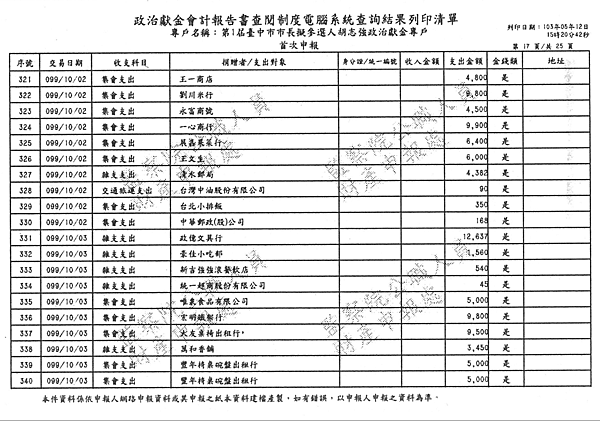 政治獻金會計報告書查閱制度電腦系統查詢結果列印清單
專戶名稱：第1屆臺中市市長擬參選人胡志強政治獻金專戶
首次申報
列印日期：103年05年12日
15時20分42秒
第 17 頁/共 25 頁
序號 交易日期 收支科目 捐贈者/支出對象 身分證/統一編號 收入金額 支出金額 金錢類 地址
321 099/10/02 集會支出 王一商店 4,800 是
322 099/10/02 集會支出 劉川米行 9,800 是
323 099/10/02 集會支出 永富商號 4,500 是
324 099/10/02 集會支出 一心商行 9,900 是
325 099/10/02 集會支出 晨晶菓菜行 6,400 是
326 099/10/02 集會支出 王文生 6,000 是
327 099/10/02 雜支支出 清水郵局 4,382 是
328 099/10/02 交通旅運支出 台灣中油股份有限公司 90 是
329 099/10/02 集會支出 台北小排飯 350 是
330 099/10/02 集會支出 中華郵政(股)公司 168 是
331 099/10/03 雜支支出 政億文具行 12,637 是
332 099/10/03 雜支支出 豪仕小吃部 1,560 是
333 099/10/03 雜支支出 新吉強強滾餐飲店 540 是
334 099/10/03 雜支支出 統一超商股份有限公司 45 是
335 099/10/03 集會支出 唯真食品有限公司 5,000 是
336 099/10/03 集會支出 宏明鐵架行 9,800 是
337 099/10/03 集會支出 大友桌椅出租行 9,500 是
338 099/10/03 雜支支出 萬和香舖 3,450 是
339 099/10/03 集會支出 豐年椅桌碗盤出租行 5,000 是
340 099/10/03 集會支出 豐年椅桌碗盤出租行 5,000 是
監察院公職人員
財產申報處
監察院公職人員
財產申報處
監察院公職人員
財產申報處
監察院公職人員
財產申報處
本件資料係依申報人網路申報資料或其申報之紙本資料建檔產製，如有錯誤，以申報人申報之資料為準。